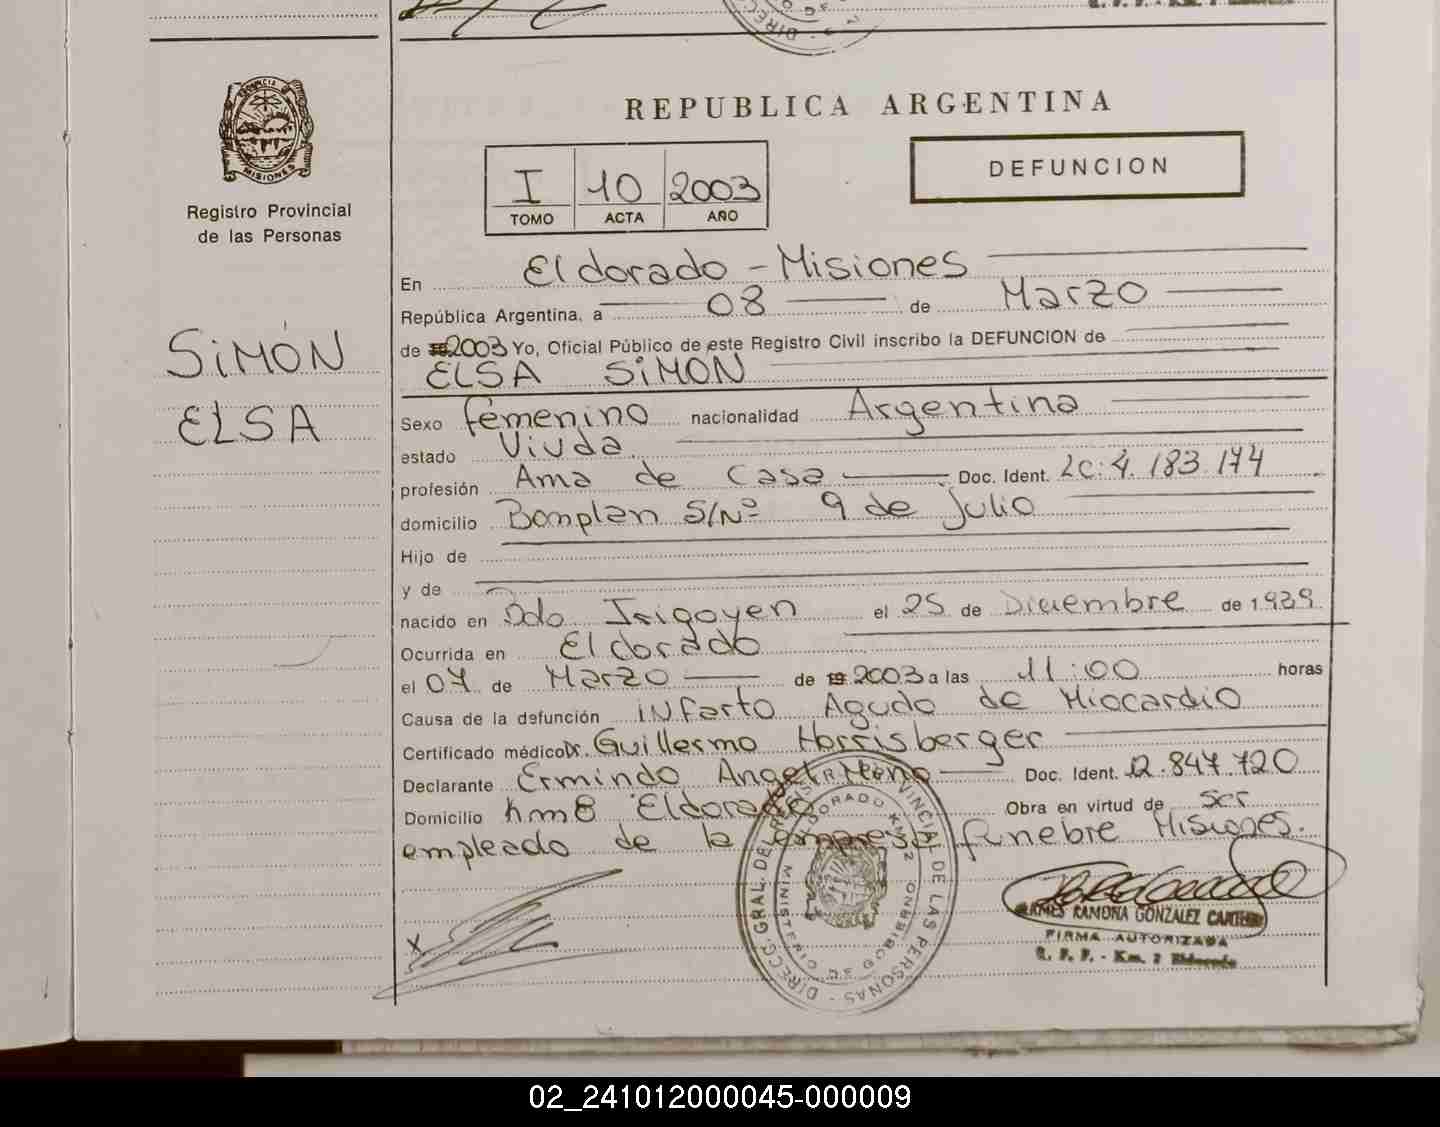 REPUBLICA ARGENTINA
PROVINCIA DE
MISIONES
Registro Provincial
de las Personas
I 10 2003
TOMO ACTA AÑO
DEFUNCION
SIMÓN
ELSA
En Eldorado - Misiones
República Argentina, a 08 de Marzo
de 2003 Yo, Oficial Público de este Registro Civil inscribo la DEFUNCION de
ELSA SIMÓN
Sexo femenino nacionalidad Argentina
estado Viuda
profesión Ama de casa Doc. Ident. LC: 4.183.174
domicilio Bomplan S/Nº 9 de Julio
Hijo de
y de
nacido en Bdo Irigoyen el 25 de Diciembre de 1.939
Ocurrida en Eldorado
el 07 de Marzo de 2003 a las 11:00 horas
Causa de la defunción infarto Agudo de Miocardio
Certificado médico Dr. Guillermo Horrisberger
Declarante Ermindo Angel Doc. Ident. 12.847.720
Domicilio Km8 Eldorado Obra en virtud de ser
empleado de la empresa funebre Misiones.
DIRECC. GRAL. DEL REGISTRO PROVINCIAL DE LAS PERSONAS
ELDORADO KM. 2
MINISTERIO DE GOBIERNO
X
RAMONA GONZALEZ
FIRMA AUTORIZADA
R. P. P. - Km. 2 Eldorado
02_241012000045-000009